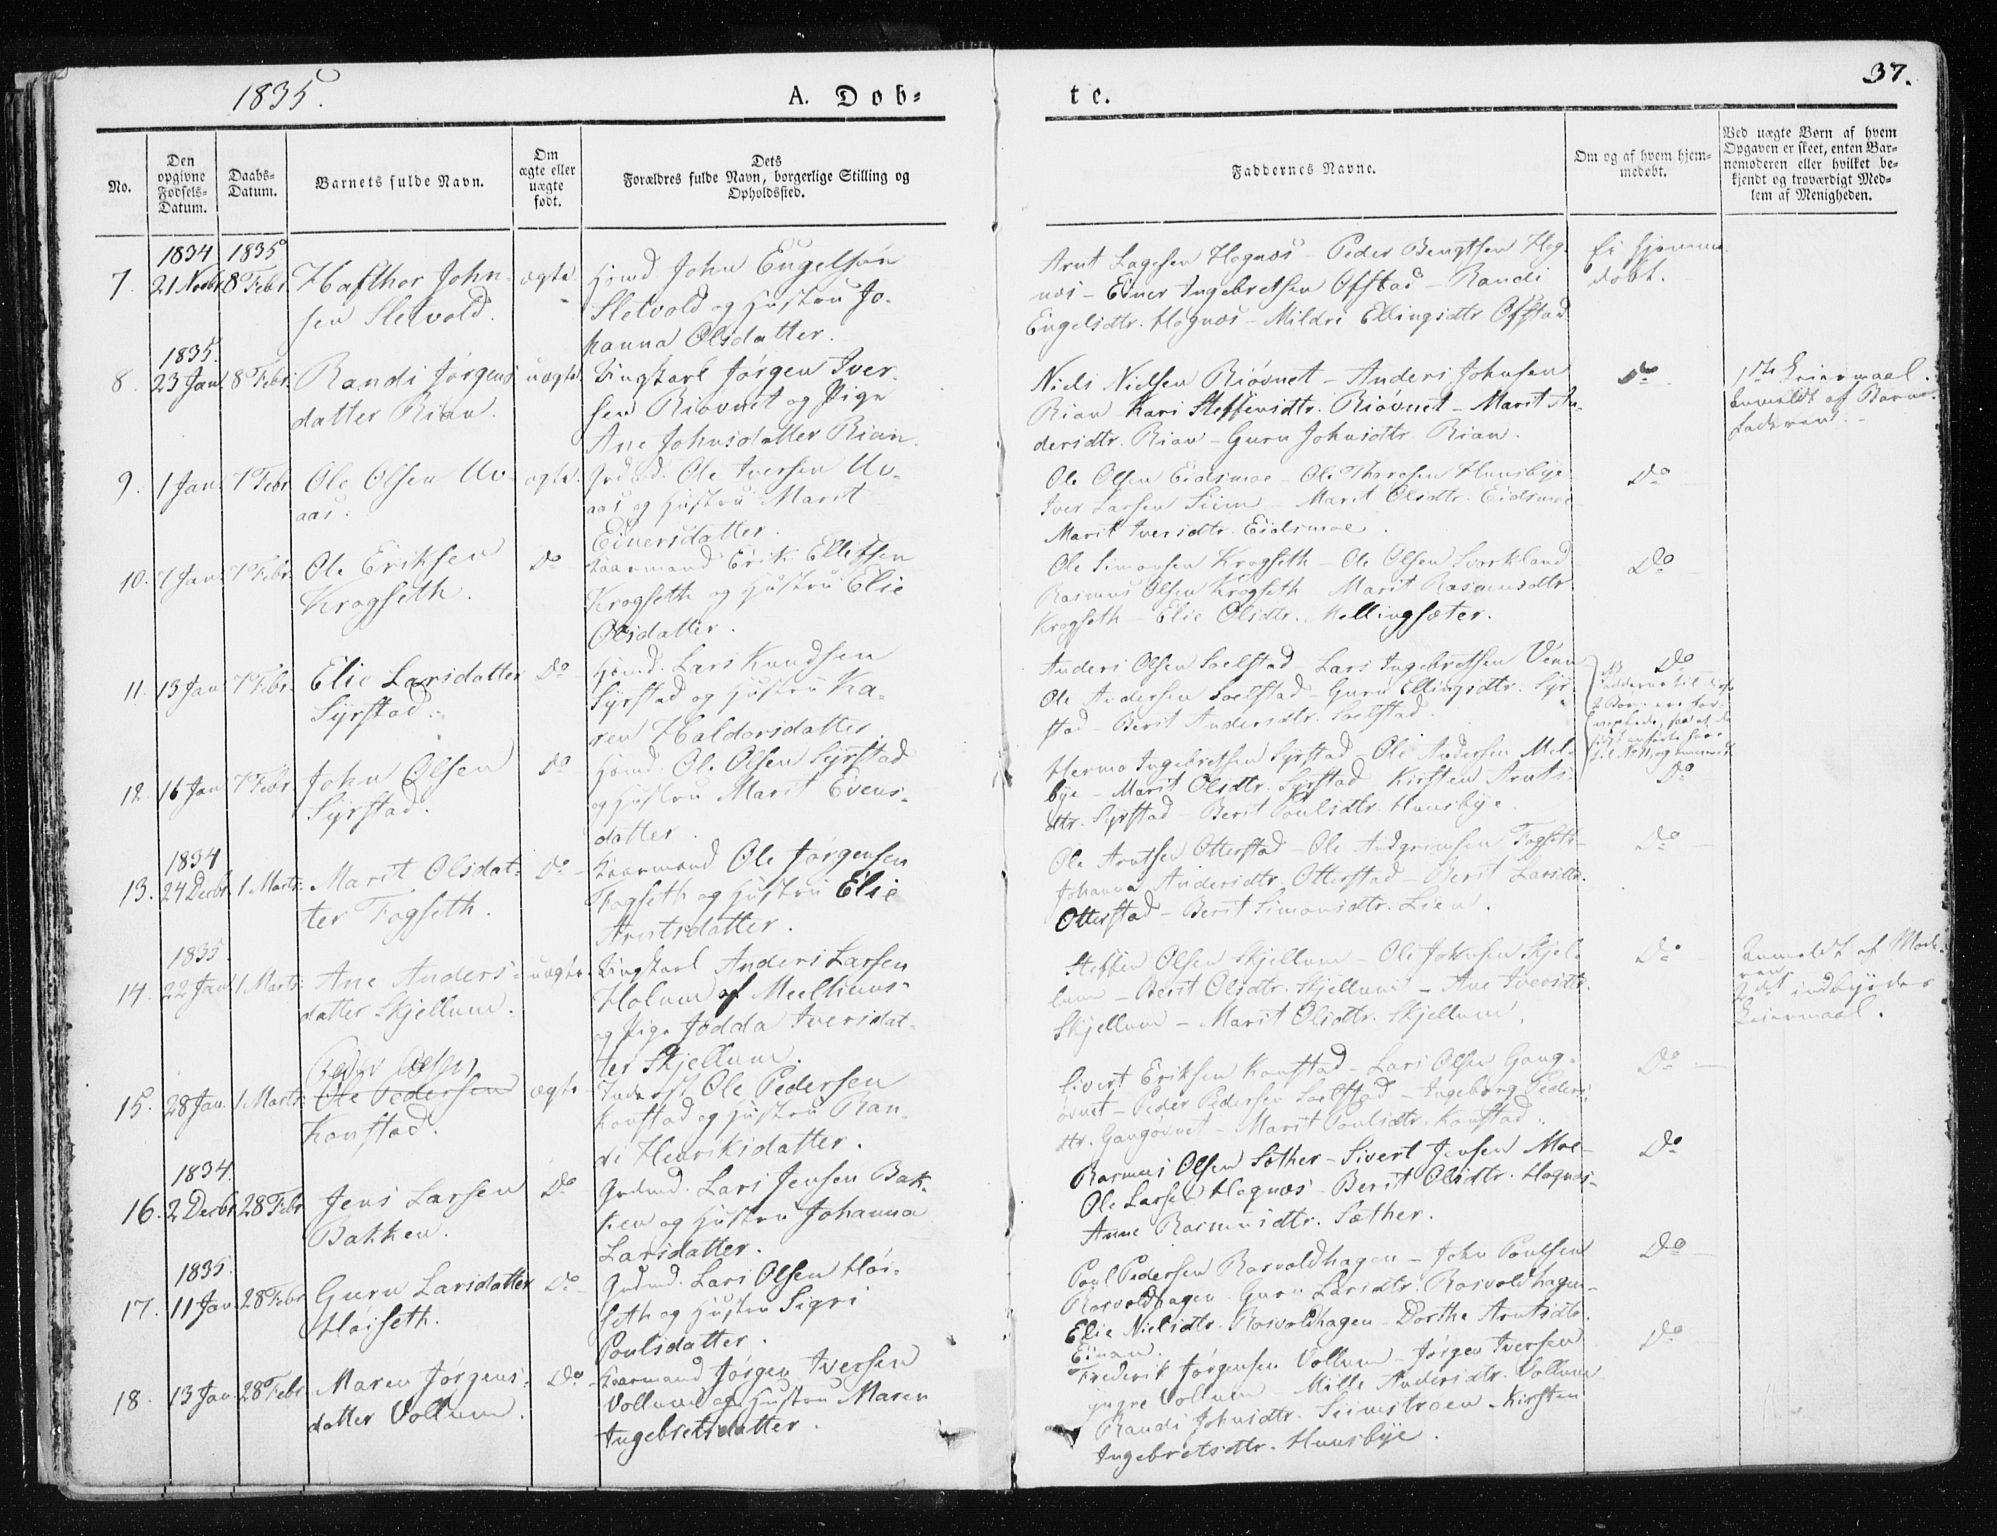 1835.
A. Døb-
te.
37.
No.
Den opgivne Fødsels-Datum.
Daabs-Datum.
Barnets fulde Navn.
Om ægte eller uægte født.
Dets Forældres fulde Navn, borgerlige Stilling og Opholdssted.
Faddernes Navne.
Om og af hvem hjem-medøbt.
Ved uægte Børn af hvem
Opgaven er skeet, enten Bar-
nemoderen eller hvilket be-
kjendt og troværdigt Med-
lem af Menigheden.
1834 1835
7. 21 Novbr 8 Febr. Hafthor John- ægte. Huusmd John Engelsøn
sen Sletvold. Sletvold og Hustru Jo-
hanna Olsdatter.
Arnt Lagesen Hognæs - Peder Bengtsen Hog-
næs - Einer Ingebretsen Ofstad - Randi
Engelsdtr. Hognæs - Mildri Ellingsdtr Ofstad
Ei hjemme
døbt.
1835.
8. 23 Jan. 8 Febr. Randi Jørgens uægte. Ungkarl Jørgen Iver-
datter Rian. sen Riøvnet og Pige
Ane Johnsdatter Rian.
Niels Nielsen Riøvnet - Anders Johnsen
Rian - Kari Steffensdtr. Riøvnet - Marit An-
dersdtr. Rian - Guru Johnsdtr. Rian.
Do
1ste Leiermaal.
Anmeldt af Barne-
faderen.
9. 1 Jan. 7 Febr. Ole Olsen Uv- ægte. Grdmd. Ole Iversen Uv-
aas. aas og Hustru Marit
Einersdatter.
Ole Olsen Eidsmoe - Ole Thoresen Huusbye
Iver Larsen Siim - Marit Olsdtr. Eidsmoe
Marit Iversdtr. Eidsmoe.
Do
10. 7 Jan. 7 Febr. Ole Eriksen Do Kaarmand Erik Ellefsen
Krogseth. Krogseth og Hustru Elie
Olsdatter.
Ole Simonsen Krogseth - Ole Olsen Svorkland
Rasmus Olsen Krogseth Marit Rasmusdtr.
Krogseth - Elie Olsdtr. Mellingsæter.
Do
11. 13 Jan. 7 Febr. Elie Larsdatter Do Huusmd. Lars Knudsen
Syrstad. Syrstad og Hustru Ka-
ren Haldorsdatter.
Anders Olsen Soelstad - Lars Ingebretsen Venn
Ole Andersen Soelstad - Guru Ellingsdtr. Syr-
stad - Berit Andersdtr. Soelstad.
Do
Fadderne til disse
2 Børn ere for-
vexlede, saa at de
12. 16 Jan 7 Febr John Olsen Do Huusmd. Ole Olsen Syrstad
Syrstad. og Hustru Marit Evens-
datter.
Hermo Ingebretsen Syrstad - Ole Andersen Mel-
bye - Marit Olsdtr. Syrstad Kirsten Arnts-
dtr. Syrstad - Berit Poulsdtr. Huusbye.
Do
1834
13. 24 Decbr. 1 Marts. Marit Olsdat- Do Kaarmand Ole Jørgensen
ter Fogseth. Fogseth og Hustru Elie
Arntsdatter.
Ole Arntsen Otterstad - Ole Andgrimsen Fogseth-
Johanna Andersdtr. Otterstad - Berit Larsdtr.
Otterstad - Berit Simonsdtr. Lien.
Do
1835.
14. 22 Jan. 1 Marts. Ane Anders- uægte. Ungkarl Anders Larsen
datter Skjellum. Holum af Meelhuus-
og Pige Jødda Iversdat-
ter Skjellum.
Steffen Olsen Skjellum - Ole Johnsen Skjel-
lum - Berit Olsdtr. Skjellum - Ane Iversdtr.
Skjellum - Marit Olsdtr. Skjellum.
Do
Anmeldt af Mode-
ren
2det indbyrdes
Leiermaal.
Peder Olsen
15. 28 Jan. 1 Marts. Ole Pedersen ægte Inderst Ole Pedersen
Konstad. Konstad og Hustru Ran-
di Henriksdatter.
Sivert Eriksen Konstad - Lars Olsen Gang-
øvnet - Peder Pedersen Soelstad - Ingeborg Peders-
dtr. Gangøvnet - Marit Poulsdtr. Konstad.
Do
1834.
16. 2 Decbr. 28 Febr Jens Larsen Do Grdmd. Lars Jensen Bak-
Bakken. ken og Hustru Johanna
Larsdatter.
Rasmus Olsen Sæther - Sivert Jensen Moe-
Ole Larsen Hognæs - Berit Olsdtr. Hognæs-
Anne Rasmusdtr. Sæther.
Do
1835.
17. 11 Jan. 28 Febr Guru Larsdatter Do Grdmd. Lars Olsen Høi-
Høiseth. seth og Hustru Sigri
Poulsdatter.
Poul Pedersen Rosvoldhagen - John Poulsen
Rosvoldhagen - Guru Larsdtr. Rosvoldhagen-
Elie Nielsdtr. Rosvoldhagen - Dorthe Arntsdtr.
Einan.
Do
18. 13 Jan. 28 Febr. Maren Jørgens- Do Kaarmand Jørgen Iversen
datter Vollum. Vollum og Hustru Maren
Ingebretsdatter.
Frederik Jørgensen Vollum - Jørgen Iversen
yngre Vollum - Mille Andersdtr. Vollum
Randi Johnsdtr. Siimstrøen - Kirsten
Ingebretsdtr. Huusbye.
Do